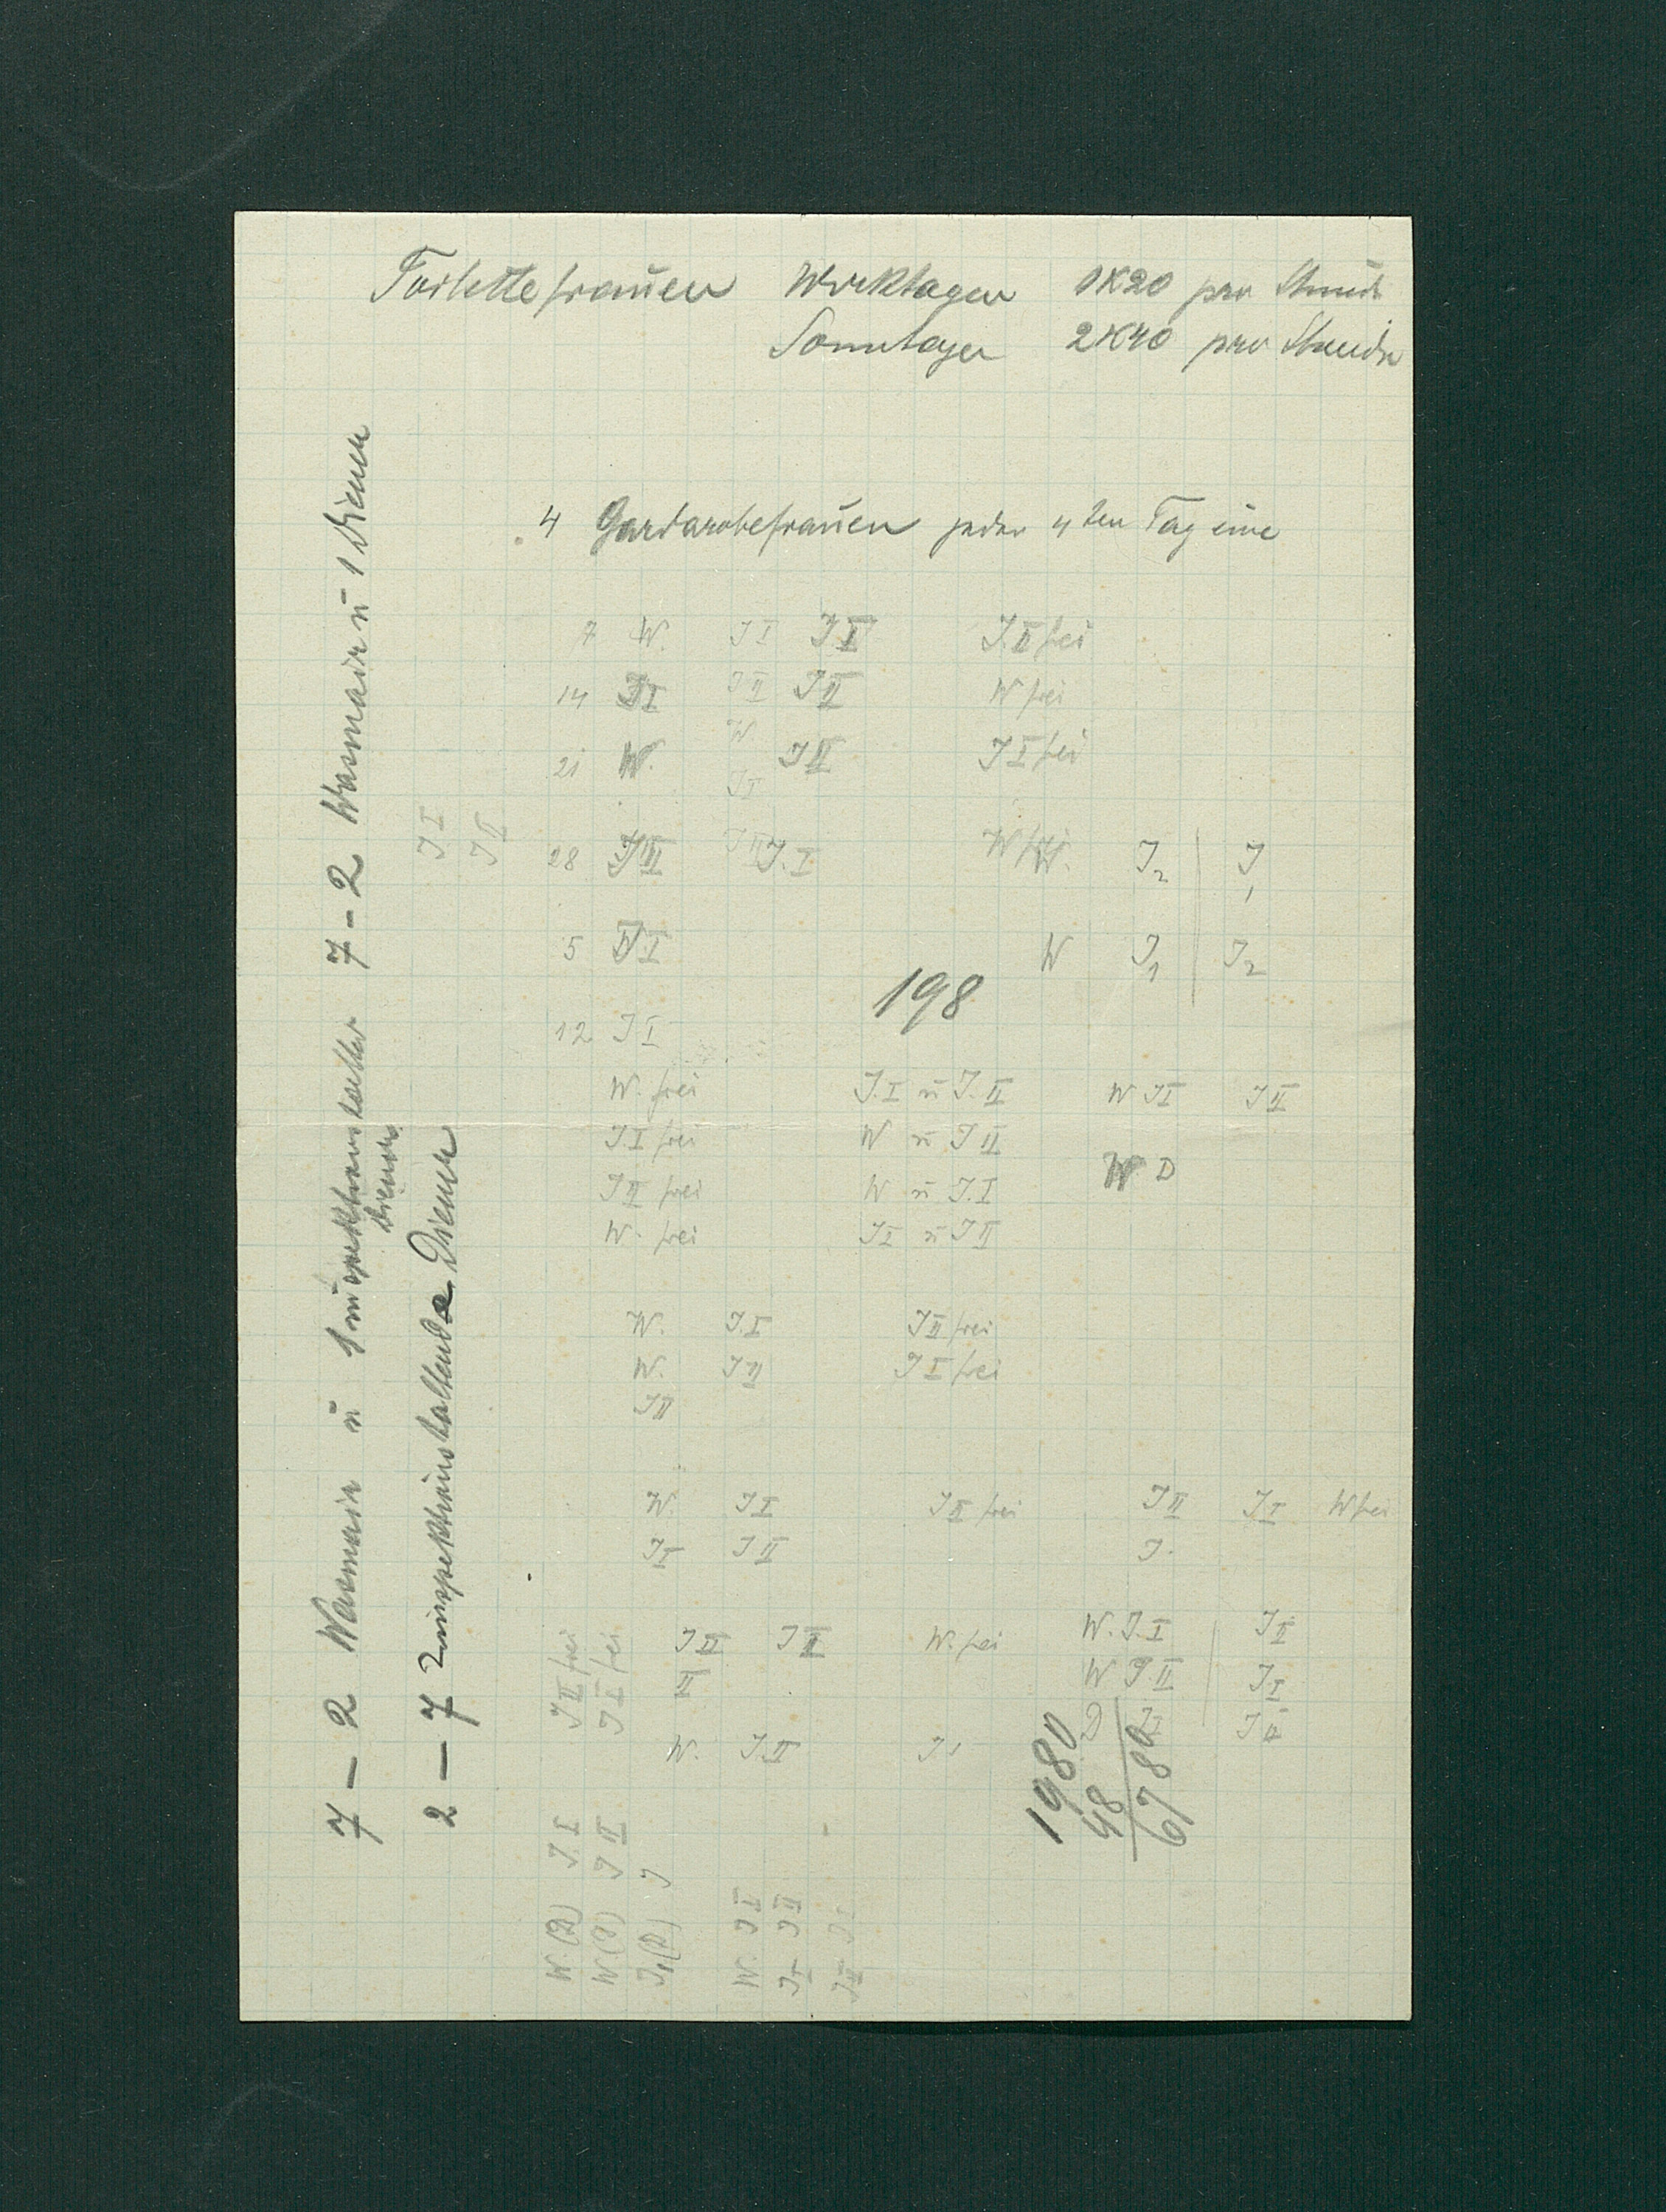 Toilettefrauen Werktagen 1K20 pro Stunde
Sonntagen 2K40 pro Stunde
4 Gardarobefrauen jeden 4ten Tag eine
7 W. J I J II J. II frei
14 J I J II J II W frei
21 W. W J II J I frei
J I
28 J II J II J. I W frei W. J2 | J1
5 J I W J1 | J2
198
12 J I
W. frei J. I u J. II W J I J II
J. I frei W u J II
J II frei W u J. I W D
W. frei J I u J II
W. J. I J II frei
W. J II J I frei
J II
W. J I J II frei J II J I W frei
J I J II J.
J II J II W. frei W. J. I | J II
II W J. II | J I
D J I | J II
W. J. II J I
7 – 2 Wasmair u 1 inspektionshaltender Diener 7 – 2 Wasmair u 1 Diener
2 – 7 2 inspektionshaltende Diener
J I
J II
J II frei
J I frei
W. (D) J. I
W. (J) J II
J1 (D) J
W. J I
J I J II
J II J I
1980
48
6780